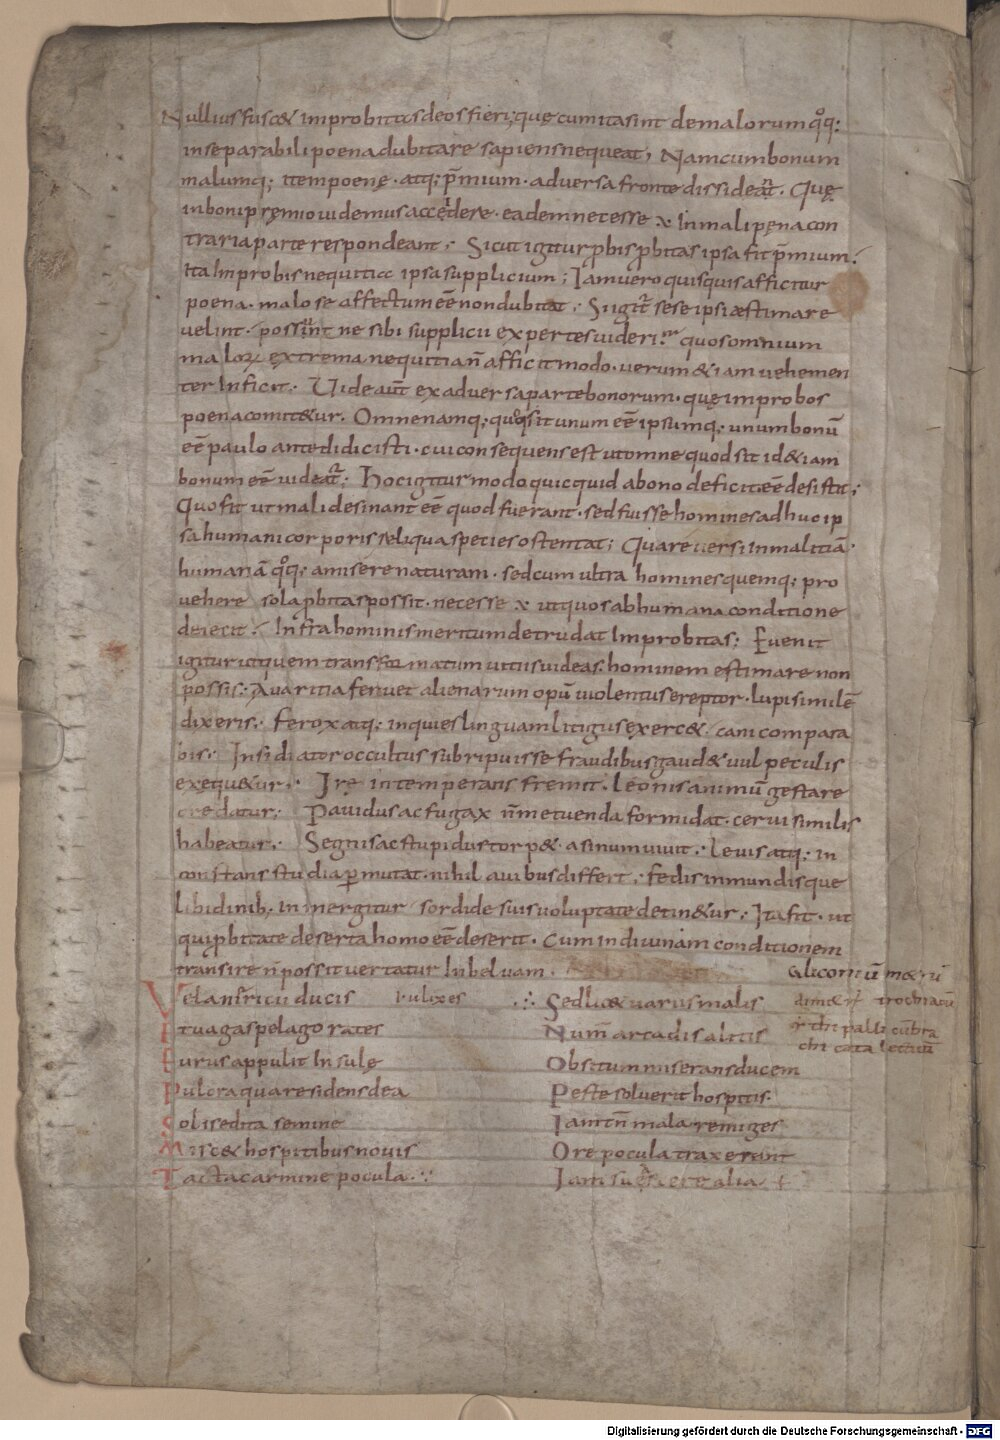 Nullius fusc& improbitas deos fieri; quę cum ita sint de malorum qoq;
inseparabili poena dubitare sapiens nequeat; Nam cum bonum
malumq; item poenę · atq; p̄mium · adversa fronte dissideat̃ · Quę
in boni pręmio videmus accędere · eadem necesse ÷ in mali pęna con
traria parte respondeant; Sicut igitur probis probitas ipsa fit p̄mium ·
ita improbis nequitia ipsa supplicium; Iam vero quisquis afficitur
poena · malo se affectum eē non dubitat · Si igit̃ sese ipsi æstimare
velint · possunt ne sibi supplicii expertes videri · quos omnium
maloꝝ extrema nequitia n̄ afficit modo · verum &iam vehemen
ter inficit · Vide aut̄ ex adversa parte bonorum · quę improbos
poena comit&ur · Omne namq; quod sit unum eē ipsumq; unum bonū
eē paulo ante didicisti · cui consequens est ut omne quod sit id &iam
bonum eē videat̃; Hoc igitur modo quicquid a bono deficit eē desistit;
Quo fit ut mali desinant eē quod fuerant · sed fuisse homines adhuc ip
sa humani corporis reliqua species ostentat; Quare versi in malitiā ·
humanā qoq; amisere naturam · sed cum ultra homines quemq; pro
vehere sola pbitas possit · necesse ÷ ut quos ab humana conditione
deiecit · Infra hominis meritum detrudat improbitas; Evenit
igitur ut quem transformatum vitiis videas · hominem estimare non
possis · Avaritia fervet alienarum opū violentus ereptor · lupi similē
dixeris · Ferox atq; inquies linguam litigiis exerc& · cani compara
bis · Insidiator occultus subripuisse fraudibus gaud& · vulpeculis
exequ&ur · Irę intemperans fremit · Leonis animū gestare
credatur · Pavidus ac fugax n̄ metuenda formidat · cervi similis
habeatur · Segnis ac stupidus torp& · asinum vivit · Levis atq; in
constans studia p̄mutat · nihil avibus differt · Fedis inmundisque
libidinib; inmergitur sordide suis voluptate detin&ur; Ita fit · ut
qui pbitate deserta homo eē deserit · cum in divinam conditionem
transire n̄ possit vertatur in beluam ·
Gliconiū m&rū
Vela naricii ducis i · ulixes
Et vagas pelago rates
Eurus appulit insulę
Pulcra qua residens dea
Solis edita semine
Misc& hospitibus novis
Tacta carmine pocula ·
Sed lic& variis malis
Num̄ arcadis alitis
Obsitum miserans ducem
Peste solverit hospitis ·
Iam tn̄ mala remiges
Ore pocula traxerant
Iam sues cerealia